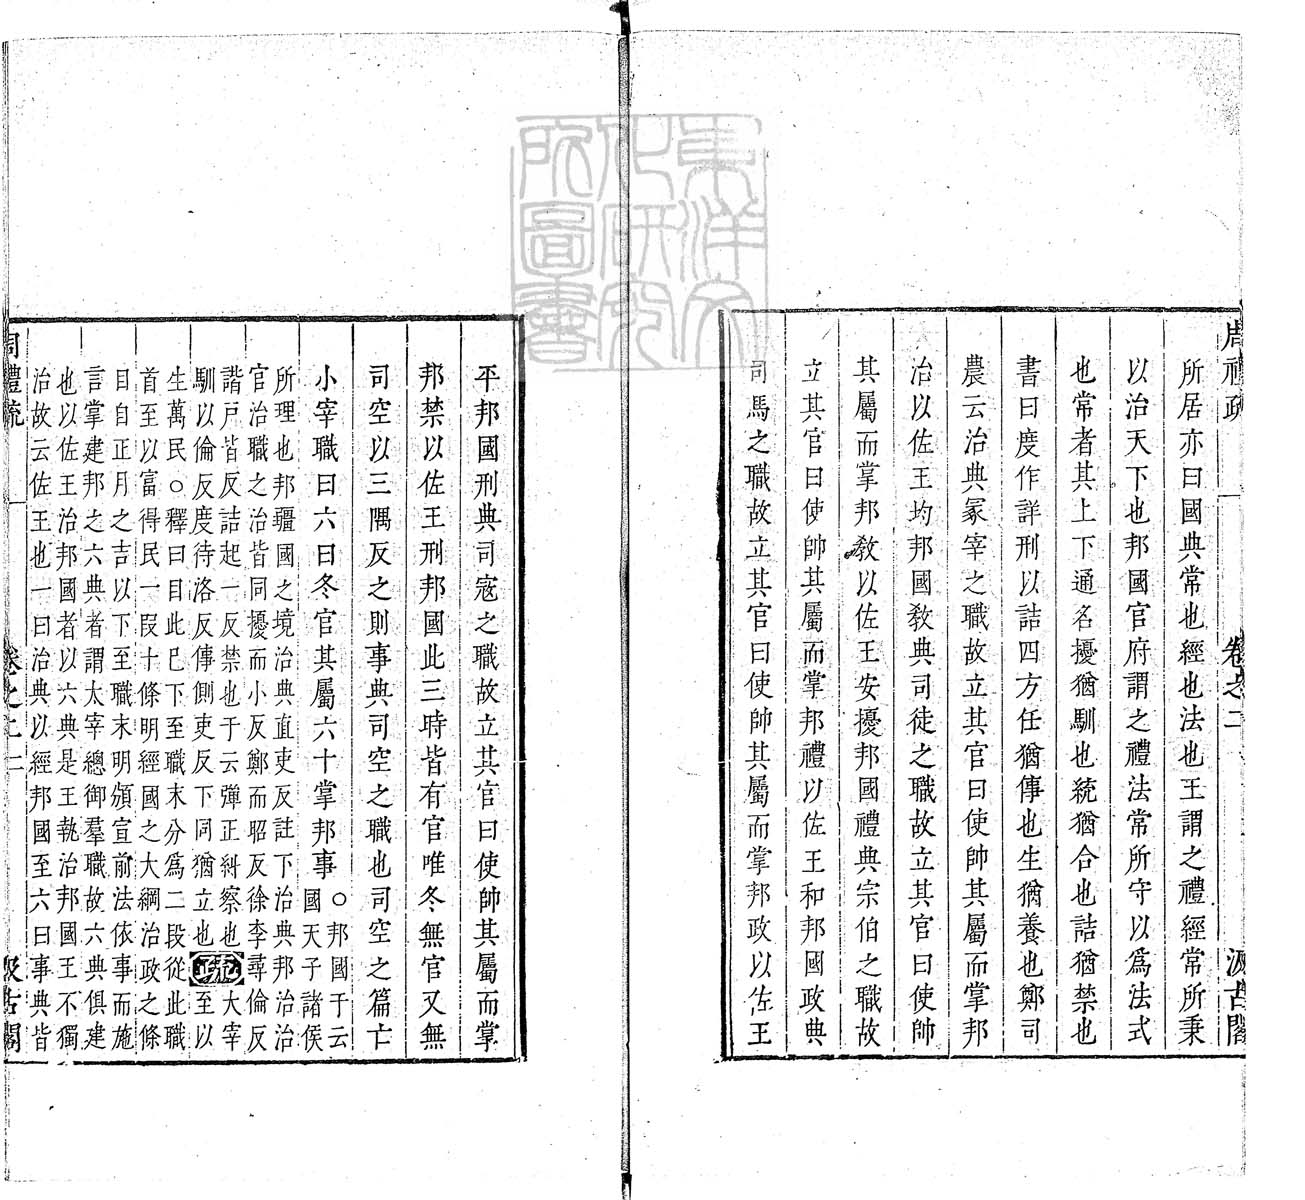 周禮疏 卷之二 汲古閣
所居亦曰國典常也經也法也王謂之禮經常所秉
以治天下也邦國官府謂之禮法常所守以爲法式
也常者其上下通名擾猶馴也統猶合也詰猶禁也
書曰度作詳刑以詰四方任猶傳也生猶養也鄭司
農云治典冢宰之職故立其官曰使帥其屬而掌邦
治以佐王均邦國敎典司徒之職故立其官曰使帥
其屬而掌邦敎以佐王安擾邦國禮典宗伯之職故
立其官曰使帥其屬而掌邦禮以佐王和邦國政典
司馬之職故立其官曰使帥其屬而掌邦政以佐王
平邦國刑典司寇之職故立其官曰使帥其屬而掌
邦禁以佐王刑邦國此三時皆有官唯冬無官又無
司空以三隅反之則事典司空之職也司空之篇亡
小宰職曰六曰冬官其屬六十掌邦事
○邦國于云
國天子諸侯
所理也邦疆國之境治典直吏反註下治典邦治治
官治職之治皆同擾而小反鄭而昭反徐李尋倫反
諧戶皆反詰起一反禁也于云彈正糾察也
馴以倫反度待洛反傳側吏反下同猶立也疏大宰至以
生萬民○釋曰自此已下至職末分爲二段從此職
首至以富得民一段十條明經國之大綱治政之條
目自正月之吉以下至職末明頒宣前法依事而施
言掌建邦之六典者謂大宰總御羣職故六典俱建
也以佐王治邦國者以六典是王執治邦國王不獨
治故云佐王也一曰治典以經邦國至六曰事典皆
周禮疏 卷之二 二 汲古閣
東洋文化研究所圖書